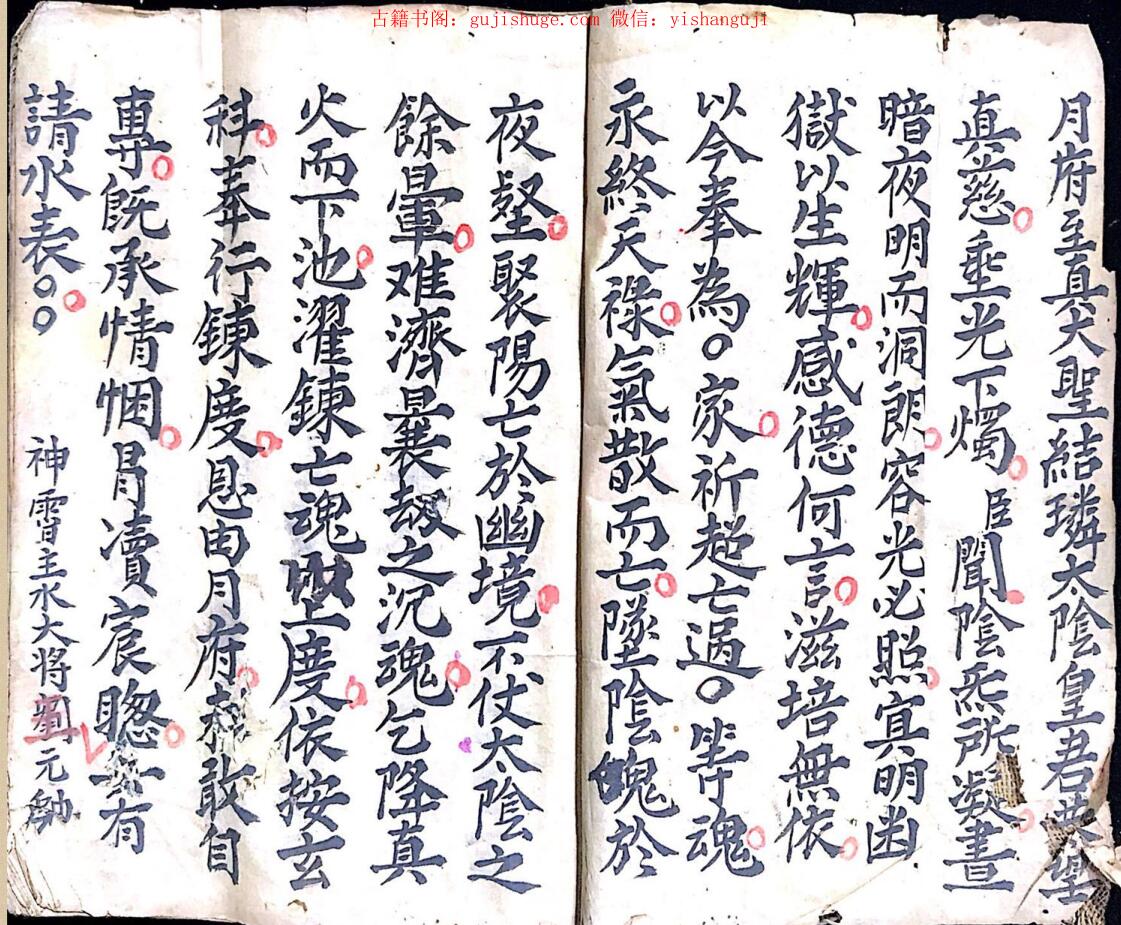 古籍书阁：gujishuge.com 微信：yishanguji
月府至真大聖結璘太陰皇君
真慈垂光下燭 臣聞陰炁所凝晝
暗夜明而洞朗容光必照冥明幽
獄以生輝感德何言滋培無依
以今奉為〇家祈超亡過〇魂
永終天祿氣散而亡墜陰魄於
夜壑聚陽亡於幽境不仗太陰之
餘暈难濟曩劫之沉魂乞降真
火而下池濯鍊亡魂上度依按玄
科奉行鍊度恩由月府敢自
專既承情悃冐凟宸聰有
請水表〇〇 神霄主水大将劉元帥